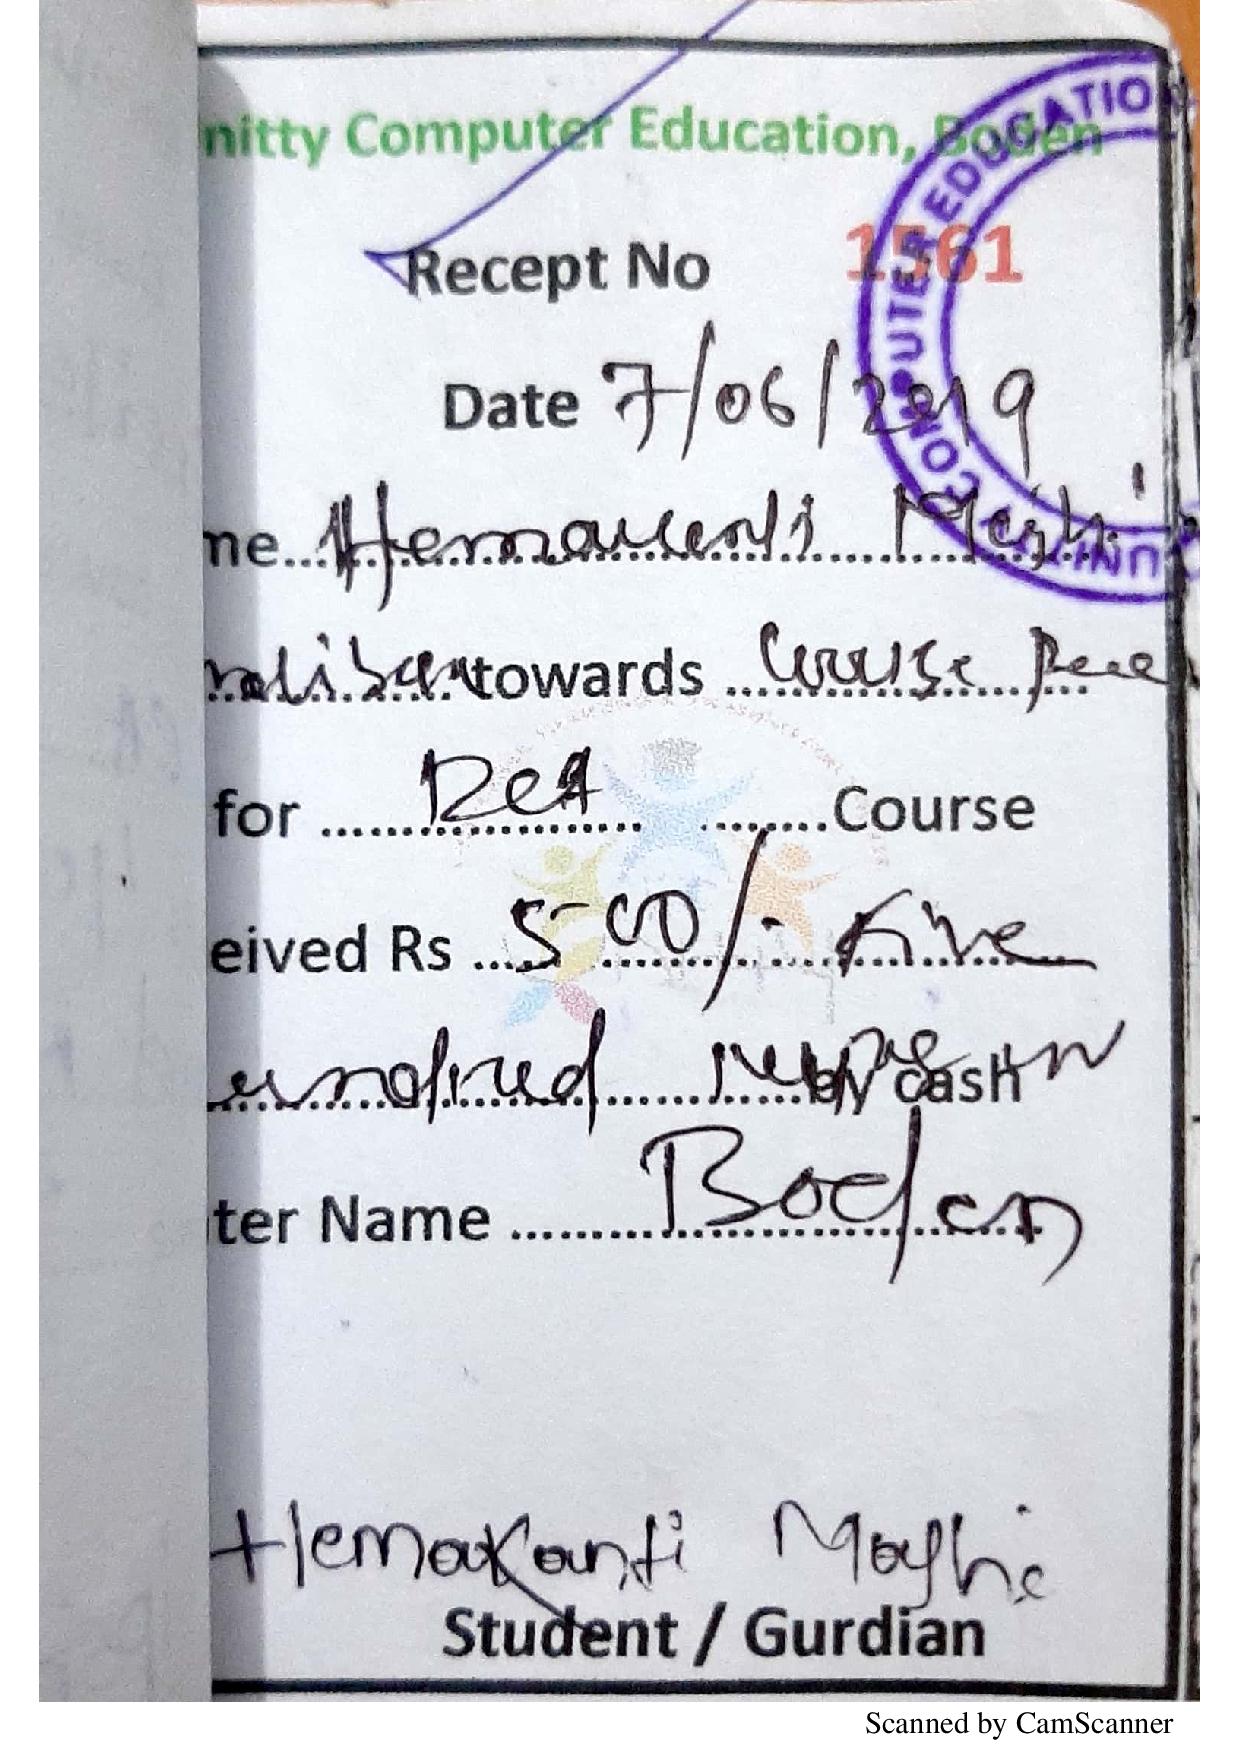 nitty Computer Education, Boden
Recept No 1561
UNITY COMPUTER EDUCATIO
Date 7/06/2019
me... Hemakanti Majhi
towards ... Course Fee
for ... DCA ... Course
eived Rs ... 500/- Five
undred rupees by cash
ter Name ... Boden
Hemakanti Majhi
Student / Gurdian
Scanned by CamScanner